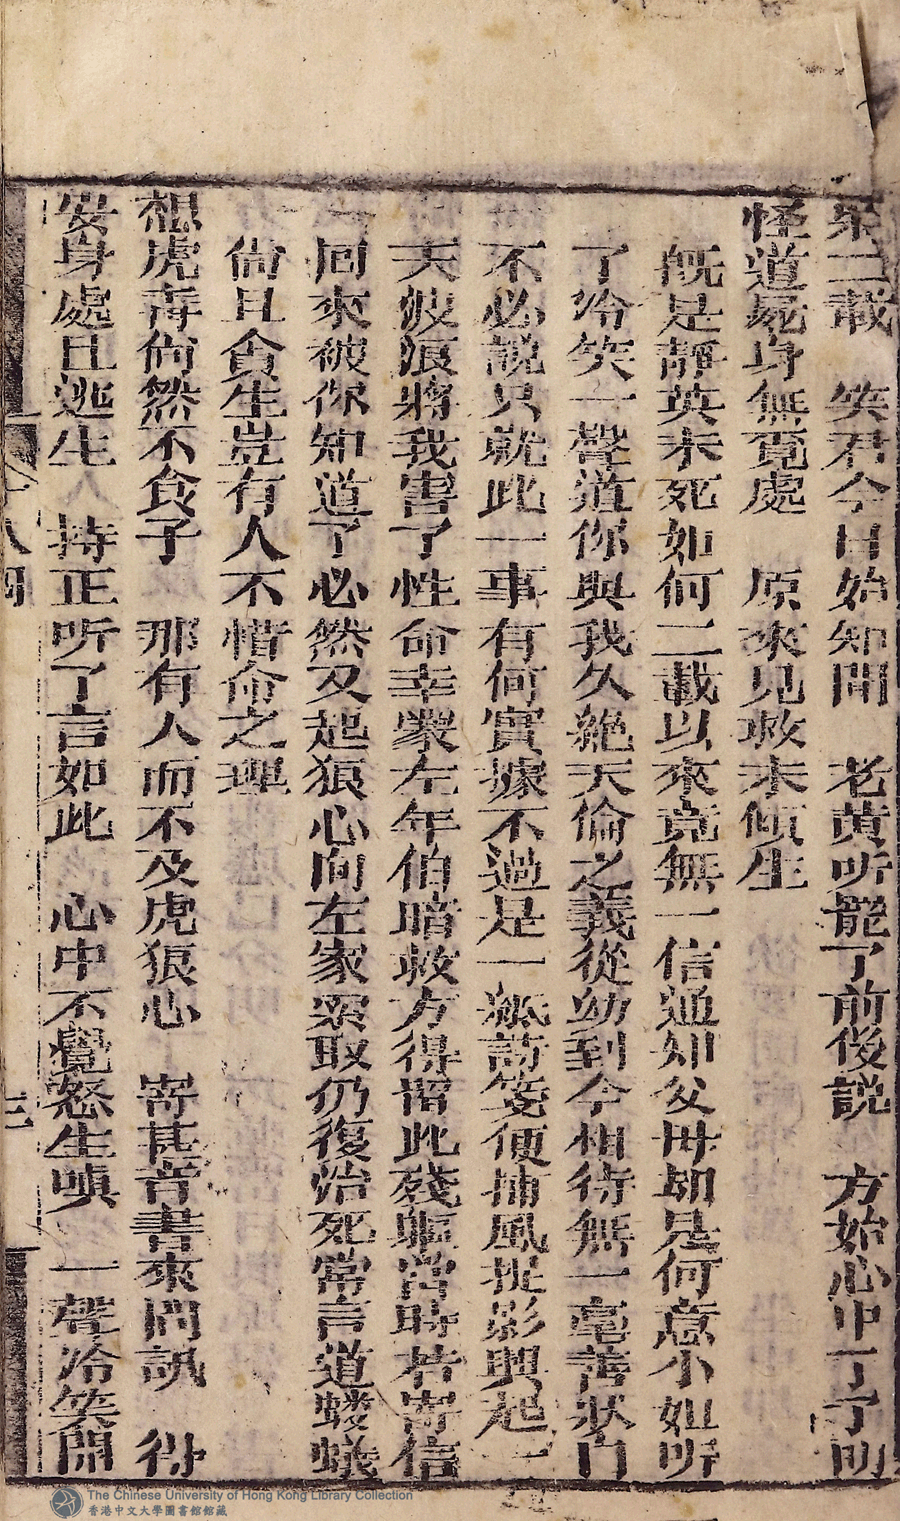 樂二載　笑君今日始知聞　老黄听罷了前後説　方始心中了了明
怪道屍身無覓處　原來見救未傾生
既是静英未死如何二載以來竟無一信通知父母却是何意小姐听
了冷笑一聲道你與我久絶天倫之義從幼到今相待無一毫善狀自
不必説只就此一事有何實據不過是一紙詩箋便捕風捉影興起一
天波浪將我害了性命幸蒙左年伯暗救方得留此殘軀當時若寄信
回來被你知道了必然又起狼心向左家眾取仍復治死常言道螻蟻
尚且貪生豈有人不惜命之理
想虎毒尚然不食子　那有人而不及虎狼心　寄甚音書來問訊　得
安身處且逃生　持正听了言如此　心中不覺怒生嗔　一聲冷笑開
八回
三
The Chinese University of Hong Kong Library Collection
香港中文大學圖書館館藏